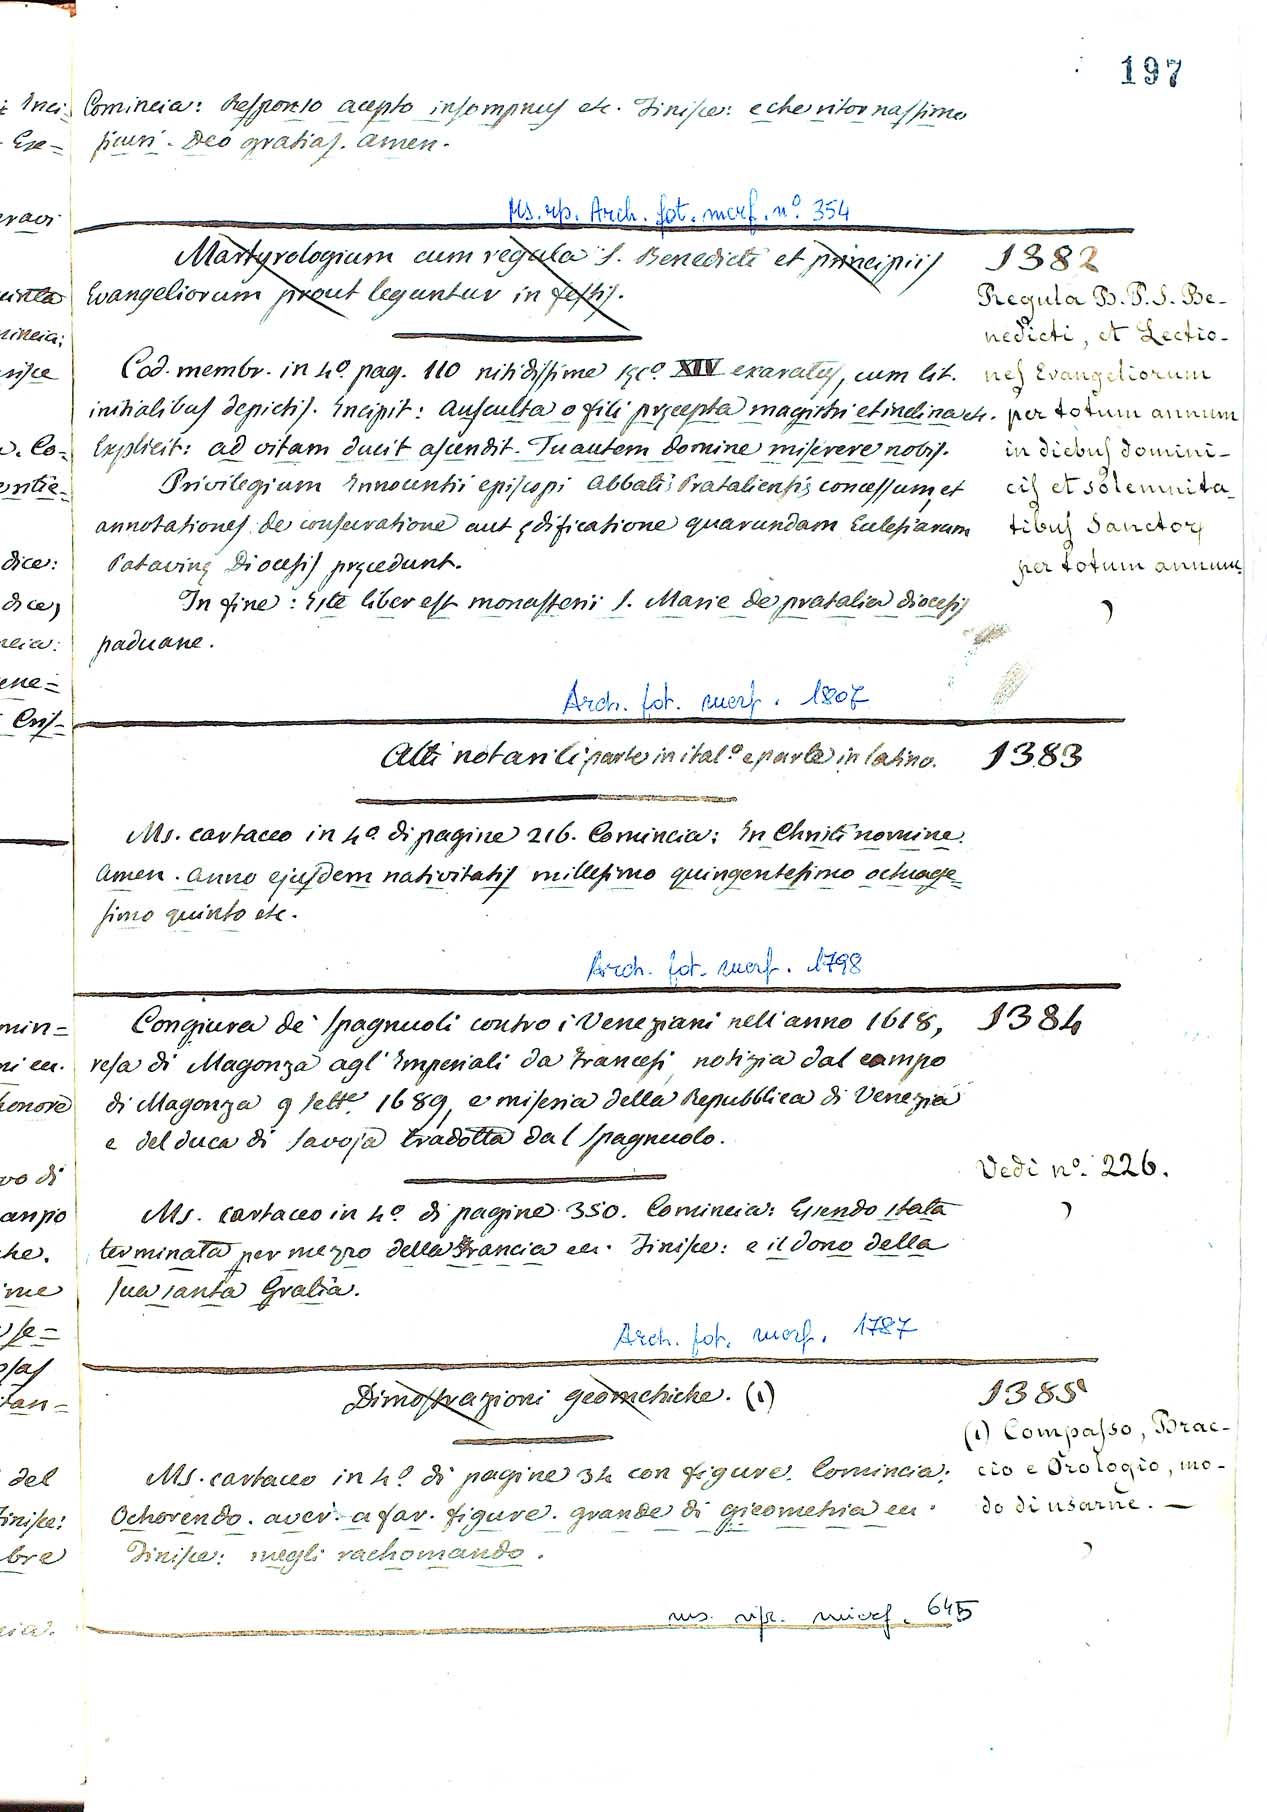 197
Comincia: Responso acepto insompnus etc. Finisce: e che ritornassimo
sicuri. Deo gratias. Amen.
Ms. rip. Arch. fot. marf. n.º 354
Martyrologium cum regula S. Benedicti et principiis
Evangeliorum prout leguntur in festis.
1382
Regula B. P. S. Be-
nedicti, et Lectio-
nes Evangeliorum
per totum annum
in diebus domini-
cis et solemnita-
tibus Sanctor
per totum annum.
Cod. membr. in 4º. pag. 110 nitidissime sęcº. XIV exaratus, cum lit.
initialibus depictis. Incipit: Ausculta o fili pręcepta magistri et inclina etc.
Explicit: ad vitam ducit ascendit. Tu autem domine miserere nobis.
Privilegium Innocentii episcopi Abbati Prataliensis concessum, et
annotationes de consecratione aut ędificatione quarundam Ecclesiarum
Patavinę Diocesis pręcedunt.
In fine: Iste liber est monasterii S. Marie de pratalia diocesis
paduane.
Arch. fot. marf. 1807
Atti notarili parte in ital.º e parte in latino.
1383
Ms. cartaceo in 4º di pagine 216. Comincia: In Christi nomine
Amen. Anno ejusdem nativitatis millesimo quingentesimo octuage=
simo quinto etc.
Arch. fot. marf. 1798
Congiura de' Spagnuoli contro i Veneziani nell'anno 1618,
resa di Magonza agl'Imperiali da Francesi, notizia dal campo
di Magonza 9 Sett.e 1689, e miseria della Repubblica di Venezia
e del duca di Savoja tradotta dal Spagnuolo.
1384
Vedi nº. 226.
Ms. cartaceo in 4º. di pagine 350. Comincia: Essendo stata
terminata per mezzo della Francia ec. Finisce: e il dono della
sua santa Gratia.
Arch. fot. marf. 1787
Dimostrazioni geometriche. (1)
1385
(1) Compasso, Brac-
cio e Orologio, mo-
do di usarne. —
Ms. cartaceo in 4º. di pagine 34 con figure. Comincia:
Ochorendo. aver. a far. figure. grande di gieometria ec.
Finisce: megli rachomando.
ms. rip. microf. 645